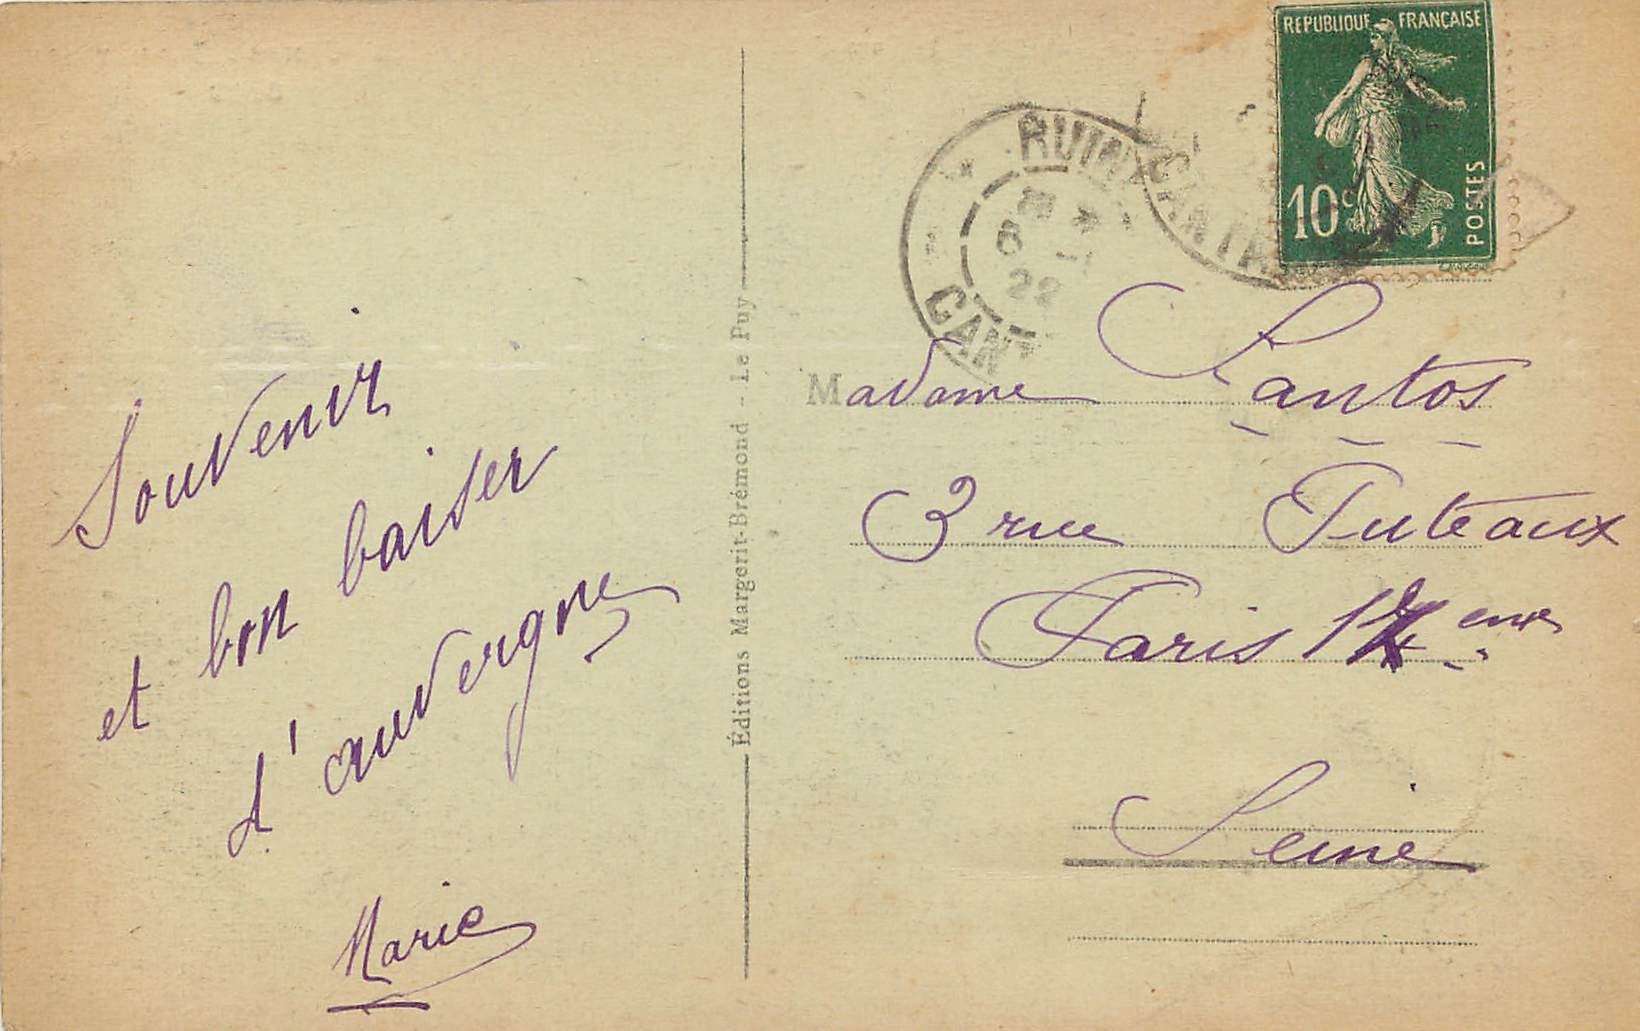 Souvenir
et bon baiser
d'auvergne
Marie
Éditions Margerit-Brémond - Le Puy
REPUBLIQUE FRANÇAISE
10c
POSTES
CANT
6
22
CANTAL
Madame Santos
3 rue Puteaux
Paris 17eme
Seine